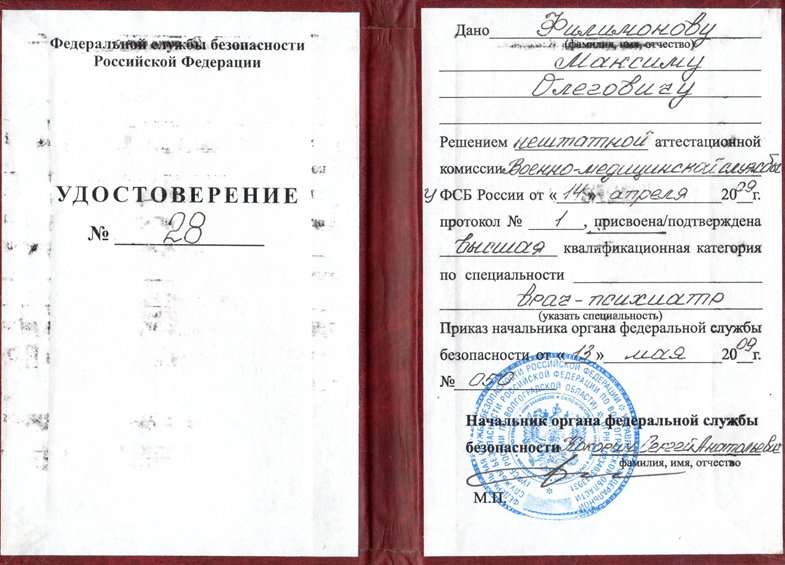 Федеральной службы безопасности
Российской Федерации
УДОСТОВЕРЕНИЕ
№ 28
Дано Филимонову
(фамилия, имя, отчество)
Максиму
Олеговичу
Решением нештатной аттестационной
комиссии Военно-медицинской службы
У ФСБ России от « 14 » апреля 2009 г.
протокол № 1 , присвоена/подтверждена
высшая квалификационная категория
по специальности
врач-психиатр
(указать специальность)
Приказ начальника органа федеральной службы
безопасности от « 13 » мая 2009 г.
№
Начальник органа федеральной службы
безопасности Кокорин Сергей Анатольевич
фамилия, имя, отчество
М.П.
ПО ВОЛГОГРАДСКОЙ ОБЛАСТИ